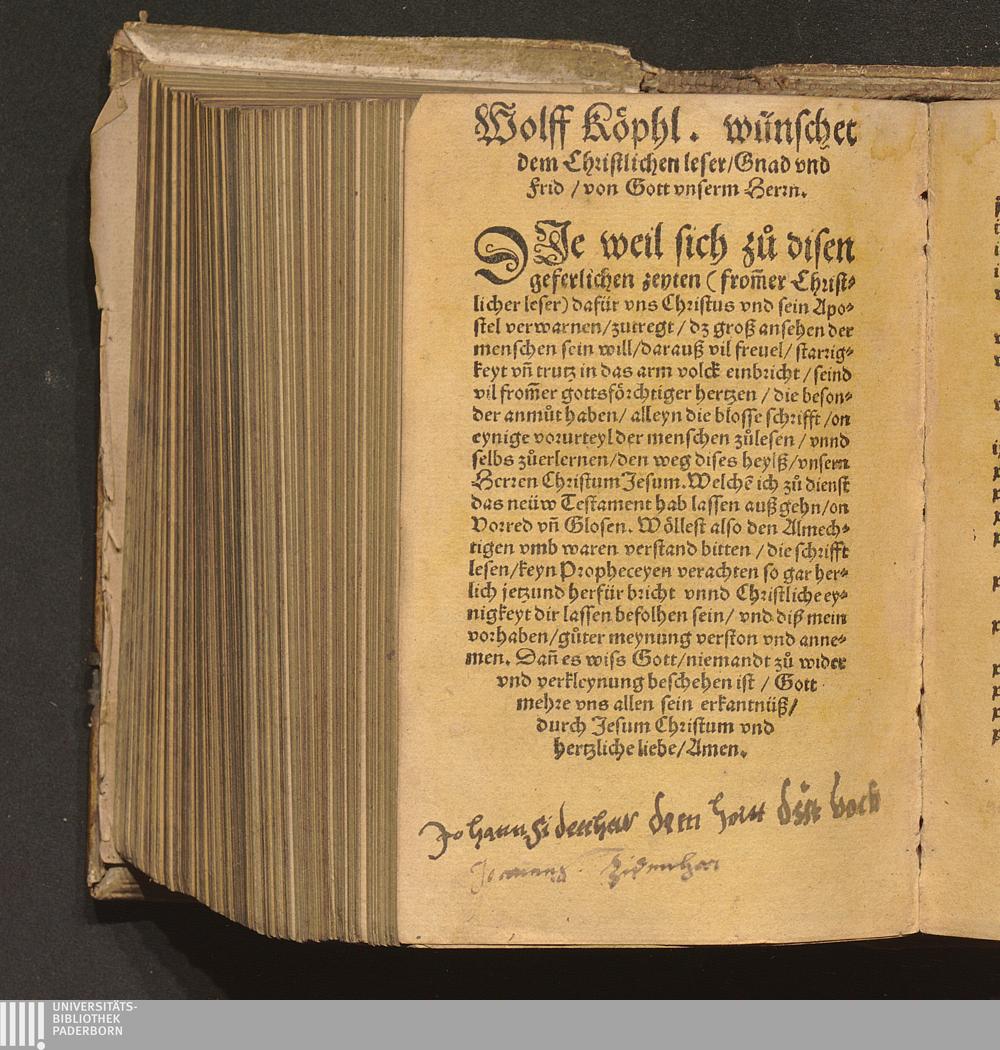 Wolff Köphl. wünschet
dem Christlichen leser/Gnad vnd
Frid/von Gott vnserm Herrn.
DIe weil sich zů disen
geferlichen zeyten (from̄er Christ⸗
licher leser) dafür vns Christus vnd sein Apo⸗
stel verwarnen/zutregt/dz groß ansehen der
menschen sein will/darauß vil freuel/starrig⸗
keyt vn̄ trutz in das arm volck einbricht/seind
vil from̄er gottsförchtiger hertzen/die beson⸗
der anmůt haben/alleyn die blosse schrifft/on
eynige vorurteyl der menschen zůlesen/vnnd
selbs zůerlernen/den weg dises heylß/vnsern
Herren Christum Jesum. Welchē ich zů dienst
das neüw Testament hab lassen außgehn/on
Vorred vn̄ Glosen. Wöllest also den Almech⸗
tigen vmb waren verstand bitten/die schrifft
lesen/keyn Propheceyen verachten so gar her⸗
lich jetzund herfür bricht vnnd Christliche ey⸗
nigkeyt dir lassen befolhen sein/vnd diß mein
vorhaben/gůter meynung verston vnd anne⸗
men. Dan̄ es wiss Gott/niemandt zů wider
vnd verkleynung beschehen ist/Gott
mehre vns allen sein erkantnüß/
durch Jesum Christum vnd
hertzliche liebe/Amen.
UNIVERSITÄTS-
BIBLIOTHEK
PADERBORN